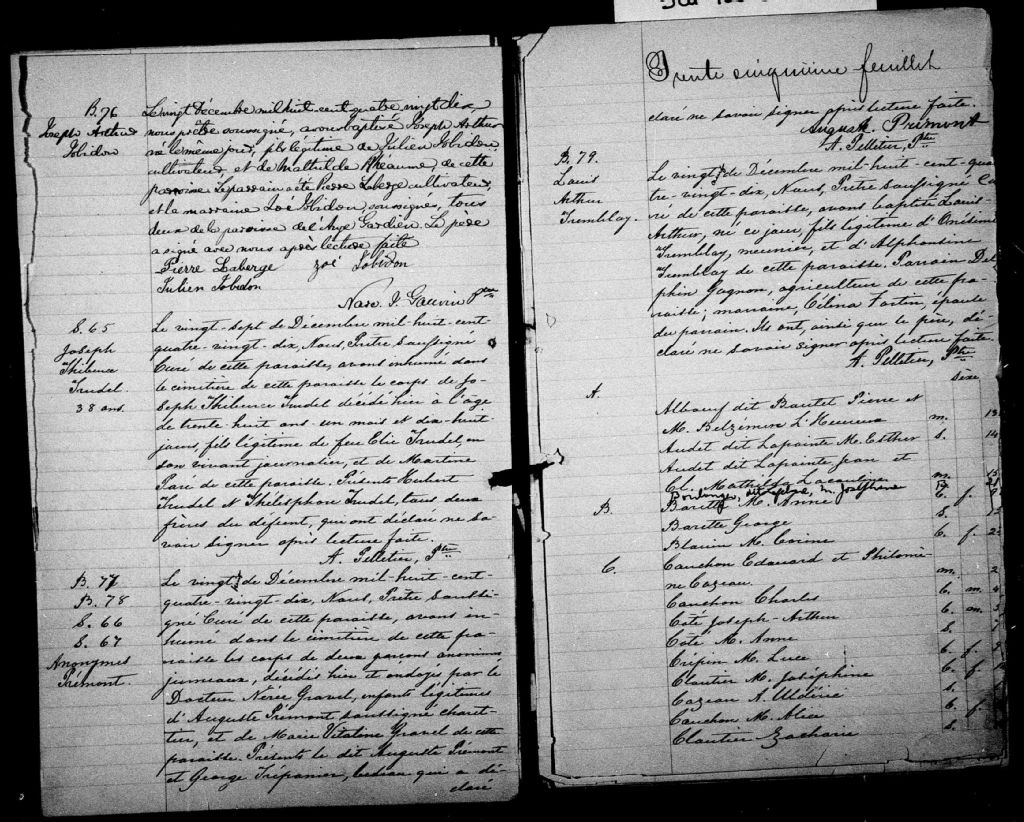 B.76
Joseph Arthur
Jobidon
Le vingt Décembre mil huit-cent quatre vingt dix
nous prêtre soussigné, avons baptisé Joseph Arthur
né le même jour, fils légitime de Julien Jobidon
cultivateur, et de Mathilde Rhéaume, de cette
paroisse. Le parrain a été Pierre Laberge cultivateur,
et la marraine Zoé Jobidon, soussignés, tous
deux de la paroisse de l'Ange Gardien. Le père
a signé avec nous après lecture faite
Pierre Laberge Zoé Jobidon
Julien Jobidon
Narc. J. Gauvin Ptre
S. 65
Joseph
Thilence
Trudel.
38 ans.
Le vingt-sept de Décembre mil-huit-cent-
quatre-vingt-dix, Nous, Prêtre soussigné
Curé de cette paroisse, avons inhumé dans
le cimetière de cette paroisse le corps de Jo-
seph Thilence Trudel décédé hier à l'age
de trente huit ans un mois et dix-huit
jours, fils légitime de feu Elie Trudel, en
son vivant journalier, et de Martine
Paré de cette paroisse. Présents Hubert
Trudel et Thélesphore Trudel, tous deux
frères du défunt, qui ont déclaré ne sa-
voir signer après lecture faite.
A. Pelletier, Ptre
B. 77
B. 78
S. 66
S. 67
Anonymes
Prémont.
Le vingt de Décembre mil-huit-cent-
quatre-vingt-dix, Nous, Prêtre soussi-
gné Curé de cette paroisse, avons in-
humé dans le cimetière de cette pa-
roisse les corps de deux garçons anonimes
jumeaux, décédés hier et ondoyés par le
Docteur Nérée Gravel, enfants légitimes
d'Auguste Prémont soussigné charre-
tier, et de Marie Vitaline Gravel de cette
paroisse. Présents le dit Auguste Prémont
et George Trépanier, bedeau qui a dé-
claré
Trente cinquième feuillet
claré ne savoir signer après lecture faite.
Auguste Prémont
A. Pelletier, Ptre
B. 79.
Louis
Arthur
Tremblay.
Le vingt de Décembre mil-huit-cent-qua-
tre-vingt-dix, Nous, Prêtre soussigné Cu-
ré de cette paroisse, avons baptisé Louis-
Arthur, né ce jour, fils légitime d'Onésime
Tremblay, meunier, et d'Alphonsine
Tremblay de cette paroisse. Parrain Del-
phin Gagnon, agriculteur de cette pa-
roisse; marraine, Célina Fortin, épouse
du parrain. Ils ont, ainsi que le père, dé-
claré ne savoir signer après lecture faite.
A. Pelletier, Ptre
A.
Alboeuf dit Boutet Pierre et
M. Belzémire L'Heureux m. 13
Audet dit Lapointe M. Esther s. 14
Audet dit Lapointe Jean et
Cl. Mathilda m. 15
B.
Barette M. Anne b. f. 9
Barette George s.
Blouin M. Corine b. f. 2
C.
Cauchon Edouard et Philomè-
ne Cazeau m. 2
Cauchon Charles b. m. 4
Coté Joseph-Arthur b. m. 5
Coté M. Anne s.
Crépin M. Luce b. f.
Cloutier M. Joséphine b. f.
Cazeau A. s.
Cauchon M. Alice b. f.
Cloutier Zacharie s.